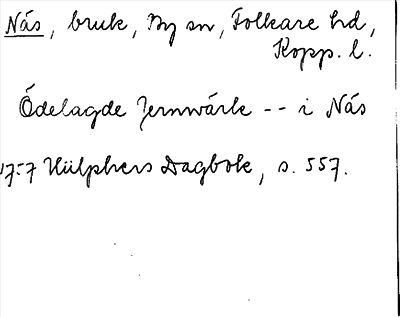 Näs, bruk, By sn, Folkare hd,
Kopp. l.
Ödelagde Jernwärk -- i Näs
1757 Hülphers Dagbok, s. 557.